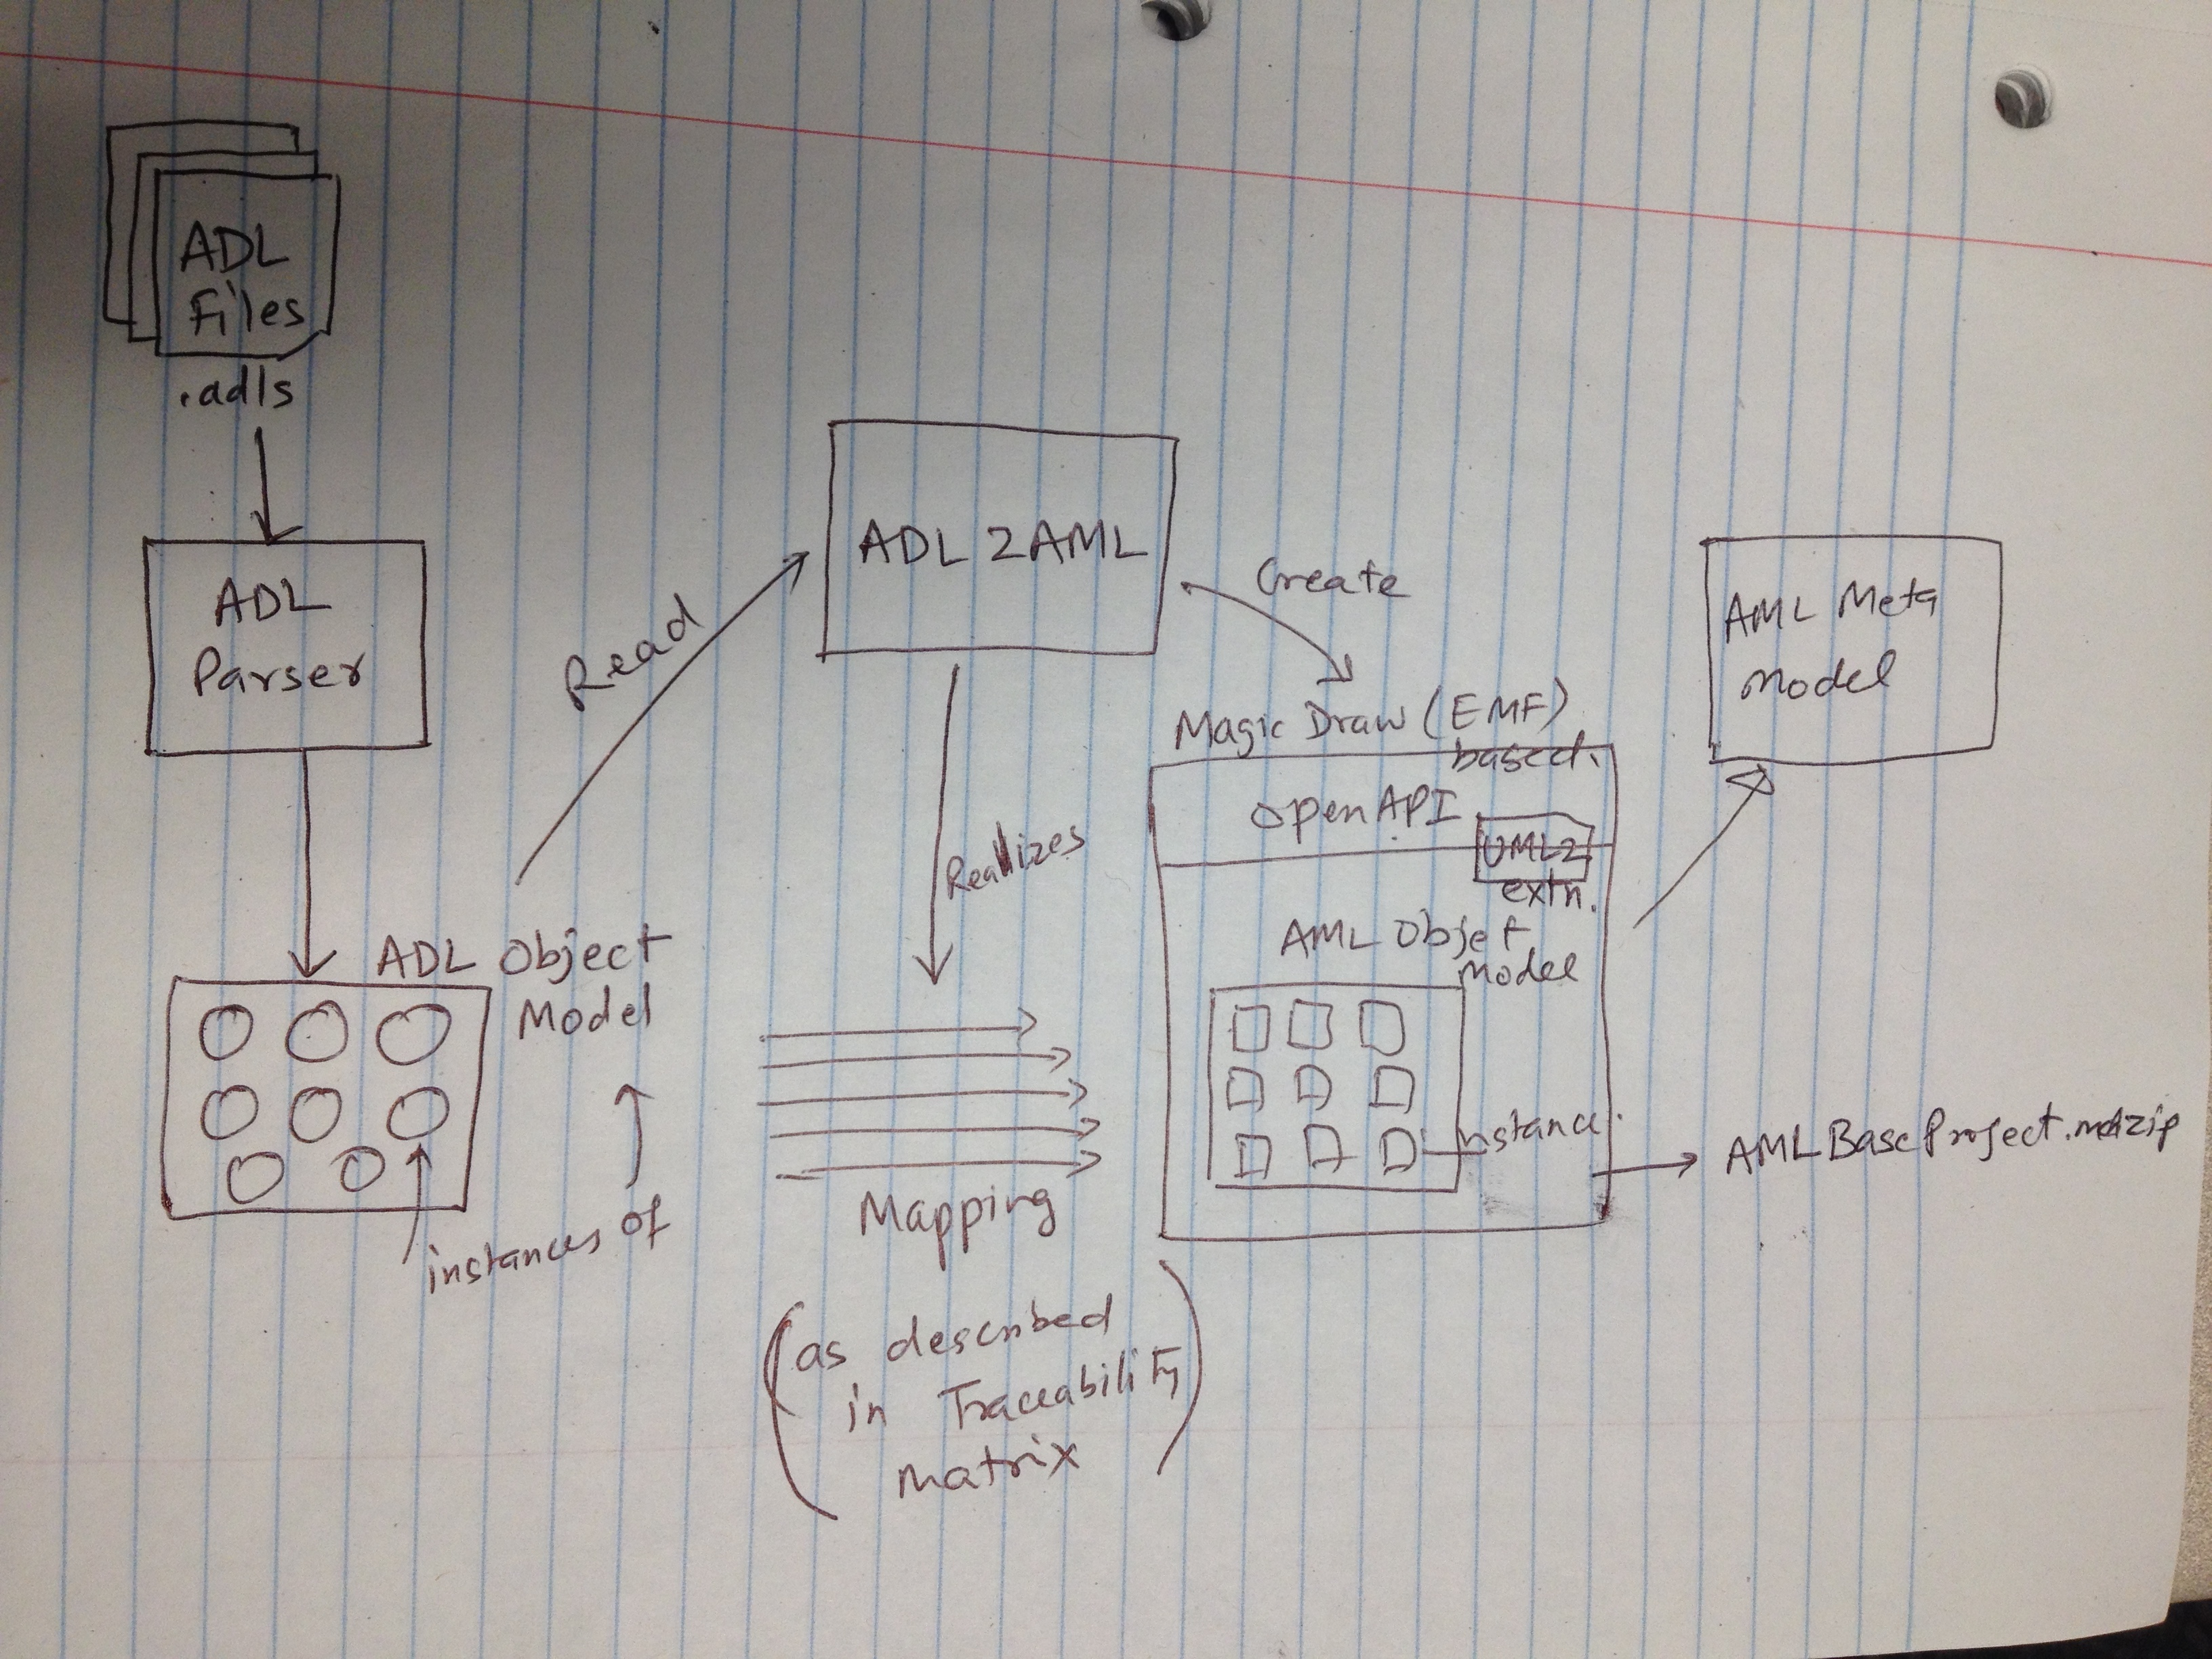 ADL
Files
.adls
ADL
Parser
ADL Object
Model
instances of
Read
ADL2AML
Realizes
Create
Mapping
(as described
in Traceability
matrix)
Magic Draw (EMF)
based.
OpenAPI
UML2
extn.
AML Objet
Model
instance.
AML Meta
Model
AMLBaseProject.mdzip